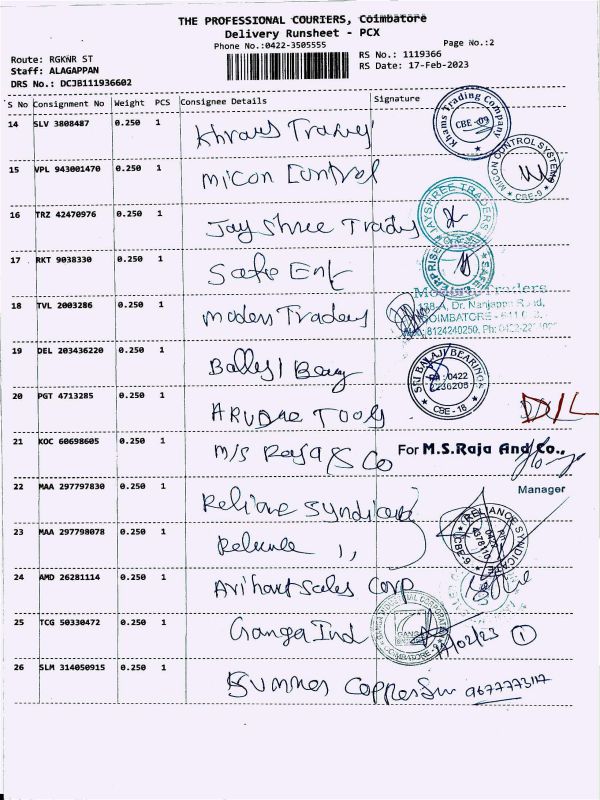 THE PROFESSIONAL COURIERS, Coimbatore
Delivery Runsheet - PCX
Phone No.:0422-3505555
Page No.:2
Route: RGKNR ST
Staff: ALAGAPPAN
DRS No.: DCJB111936602
RS No.: 1119366
RS Date: 17-Feb-2023
S No Consignment No Weight PCS Consignee Details Signature
14 SLV 3808487 0.250 1
Khrams Trading Company CBE-09
15 VPL 943001470 0.250 1 Micon Control
MICON CONTROL SYSTEMS CBE-9
16 TRZ 42470976 0.250 1 Jay Shree Traders
JAYSHREE TRADERS
17 RKT 9038330 0.250 1 Safe Ent
SAFE ENTERPRISE
18 TVL 2003286 0.250 1 Modern Traders
Traders
138-A, Dr. Nanjappa Road,
COIMBATORE
8124240250, Ph: 0422-22
19 DEL 203436220 0.250 1
SRI BALAJI BEARING PH: 0422 2236205 CBE-18
20 PGT 4713285 0.250 1 Tools D/L
21 KOC 60698605 0.250 1 M/S Raja & Co
For M.S.Raja And Co.,
Manager
22 MAA 297797830 0.250 1 Reliance Syndicate
RELIANCE SYNDICATE CBE-9
23 MAA 297798078 0.250 1 Reliance
24 AMD 26281114 0.250 1 Arihant Sales Corp
25 TCG 50330472 0.250 1 Ganga Ind
COIMBATORE
17/02/23 1
26 SLM 314050915 0.250 1 9677773117